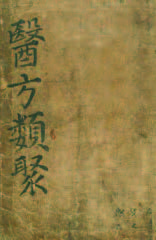 醫方類聚